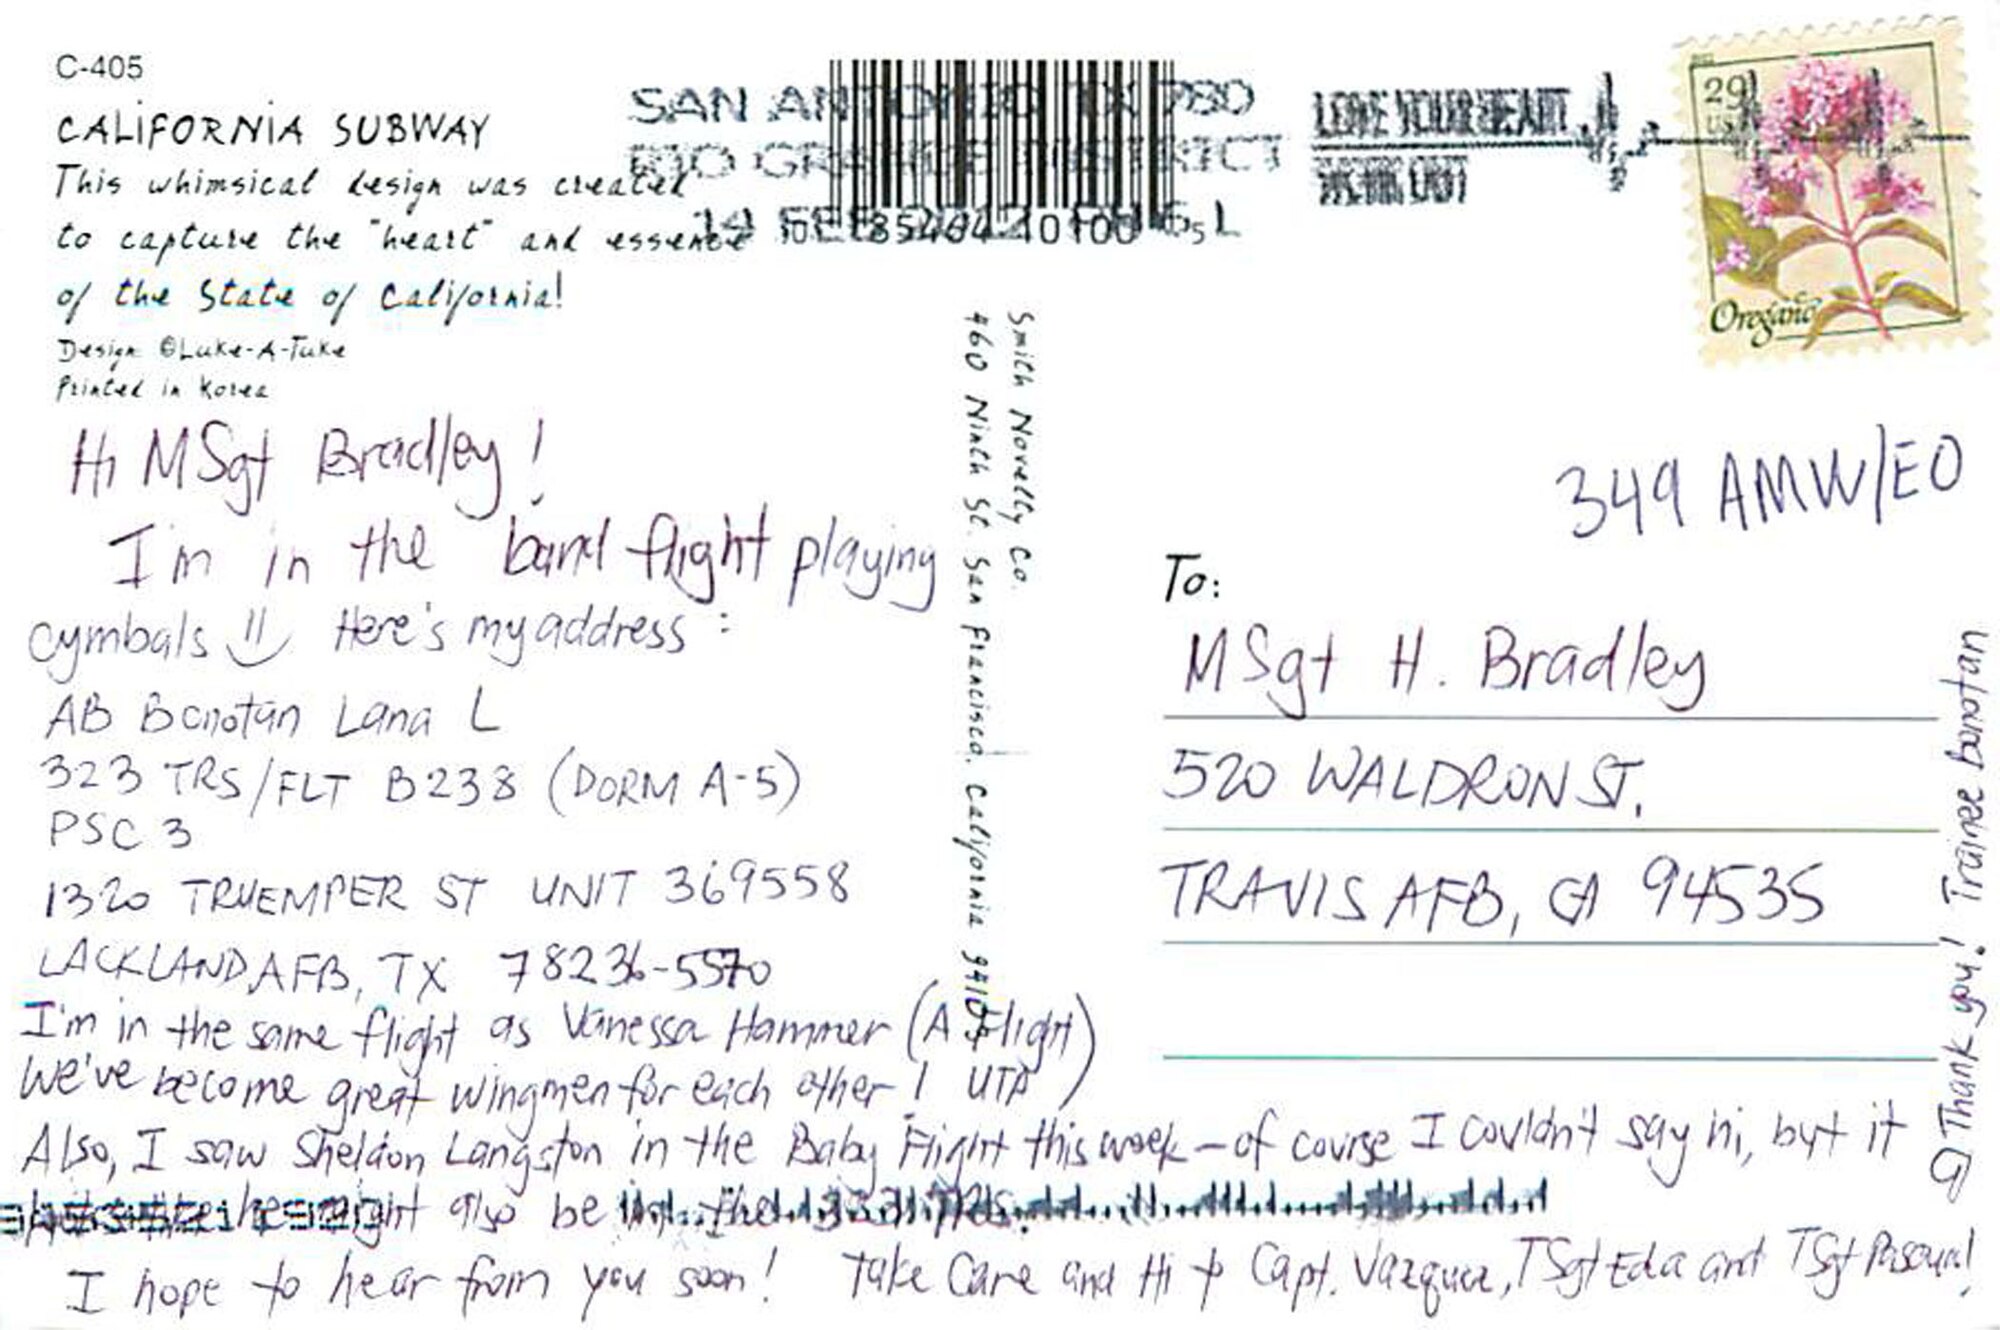 C-405
CALIFORNIA SUBWAY
This whimsical design was created
to capture the "heart" and essence
of the State of California!
Design ©Luke-A-Tuke
Printed in Korea
SAN ANTONIO TX 780
RIO GRANDE DISTRICT
14 FEB
LOVE YOUR HEART
29
USA
Oregano
Smith Novelty Co.
460 Ninth St. San Francisco, California 94103
Hi MSgt Bradley!
I'm in the band flight playing
cymbals Here's my address:
AB Bonotan Lana L
323 TRS/FLT B238 (DORM A-5)
PSC 3
1320 TRUEMPER ST UNIT 369558
LACKLAND AFB, TX 78236-5570
I'm in the same flight as Vanessa Hammer (A Flight)
We've become great wingmen for each other! UTA)
Also, I saw Sheldon Langston in the Baby Flight this week - of course I couldn't say hi, but it
he might also be in the TRS.
I hope to hear from you soon! Take Care and Hi to Capt. Vazquez, TSgt Eda and TSgt Pascual!
Thank you! Trainee Bonotan
349 AMW/EO
To:
MSgt H. Bradley
520 WALDRON ST.
TRAVIS AFB, CA 94535